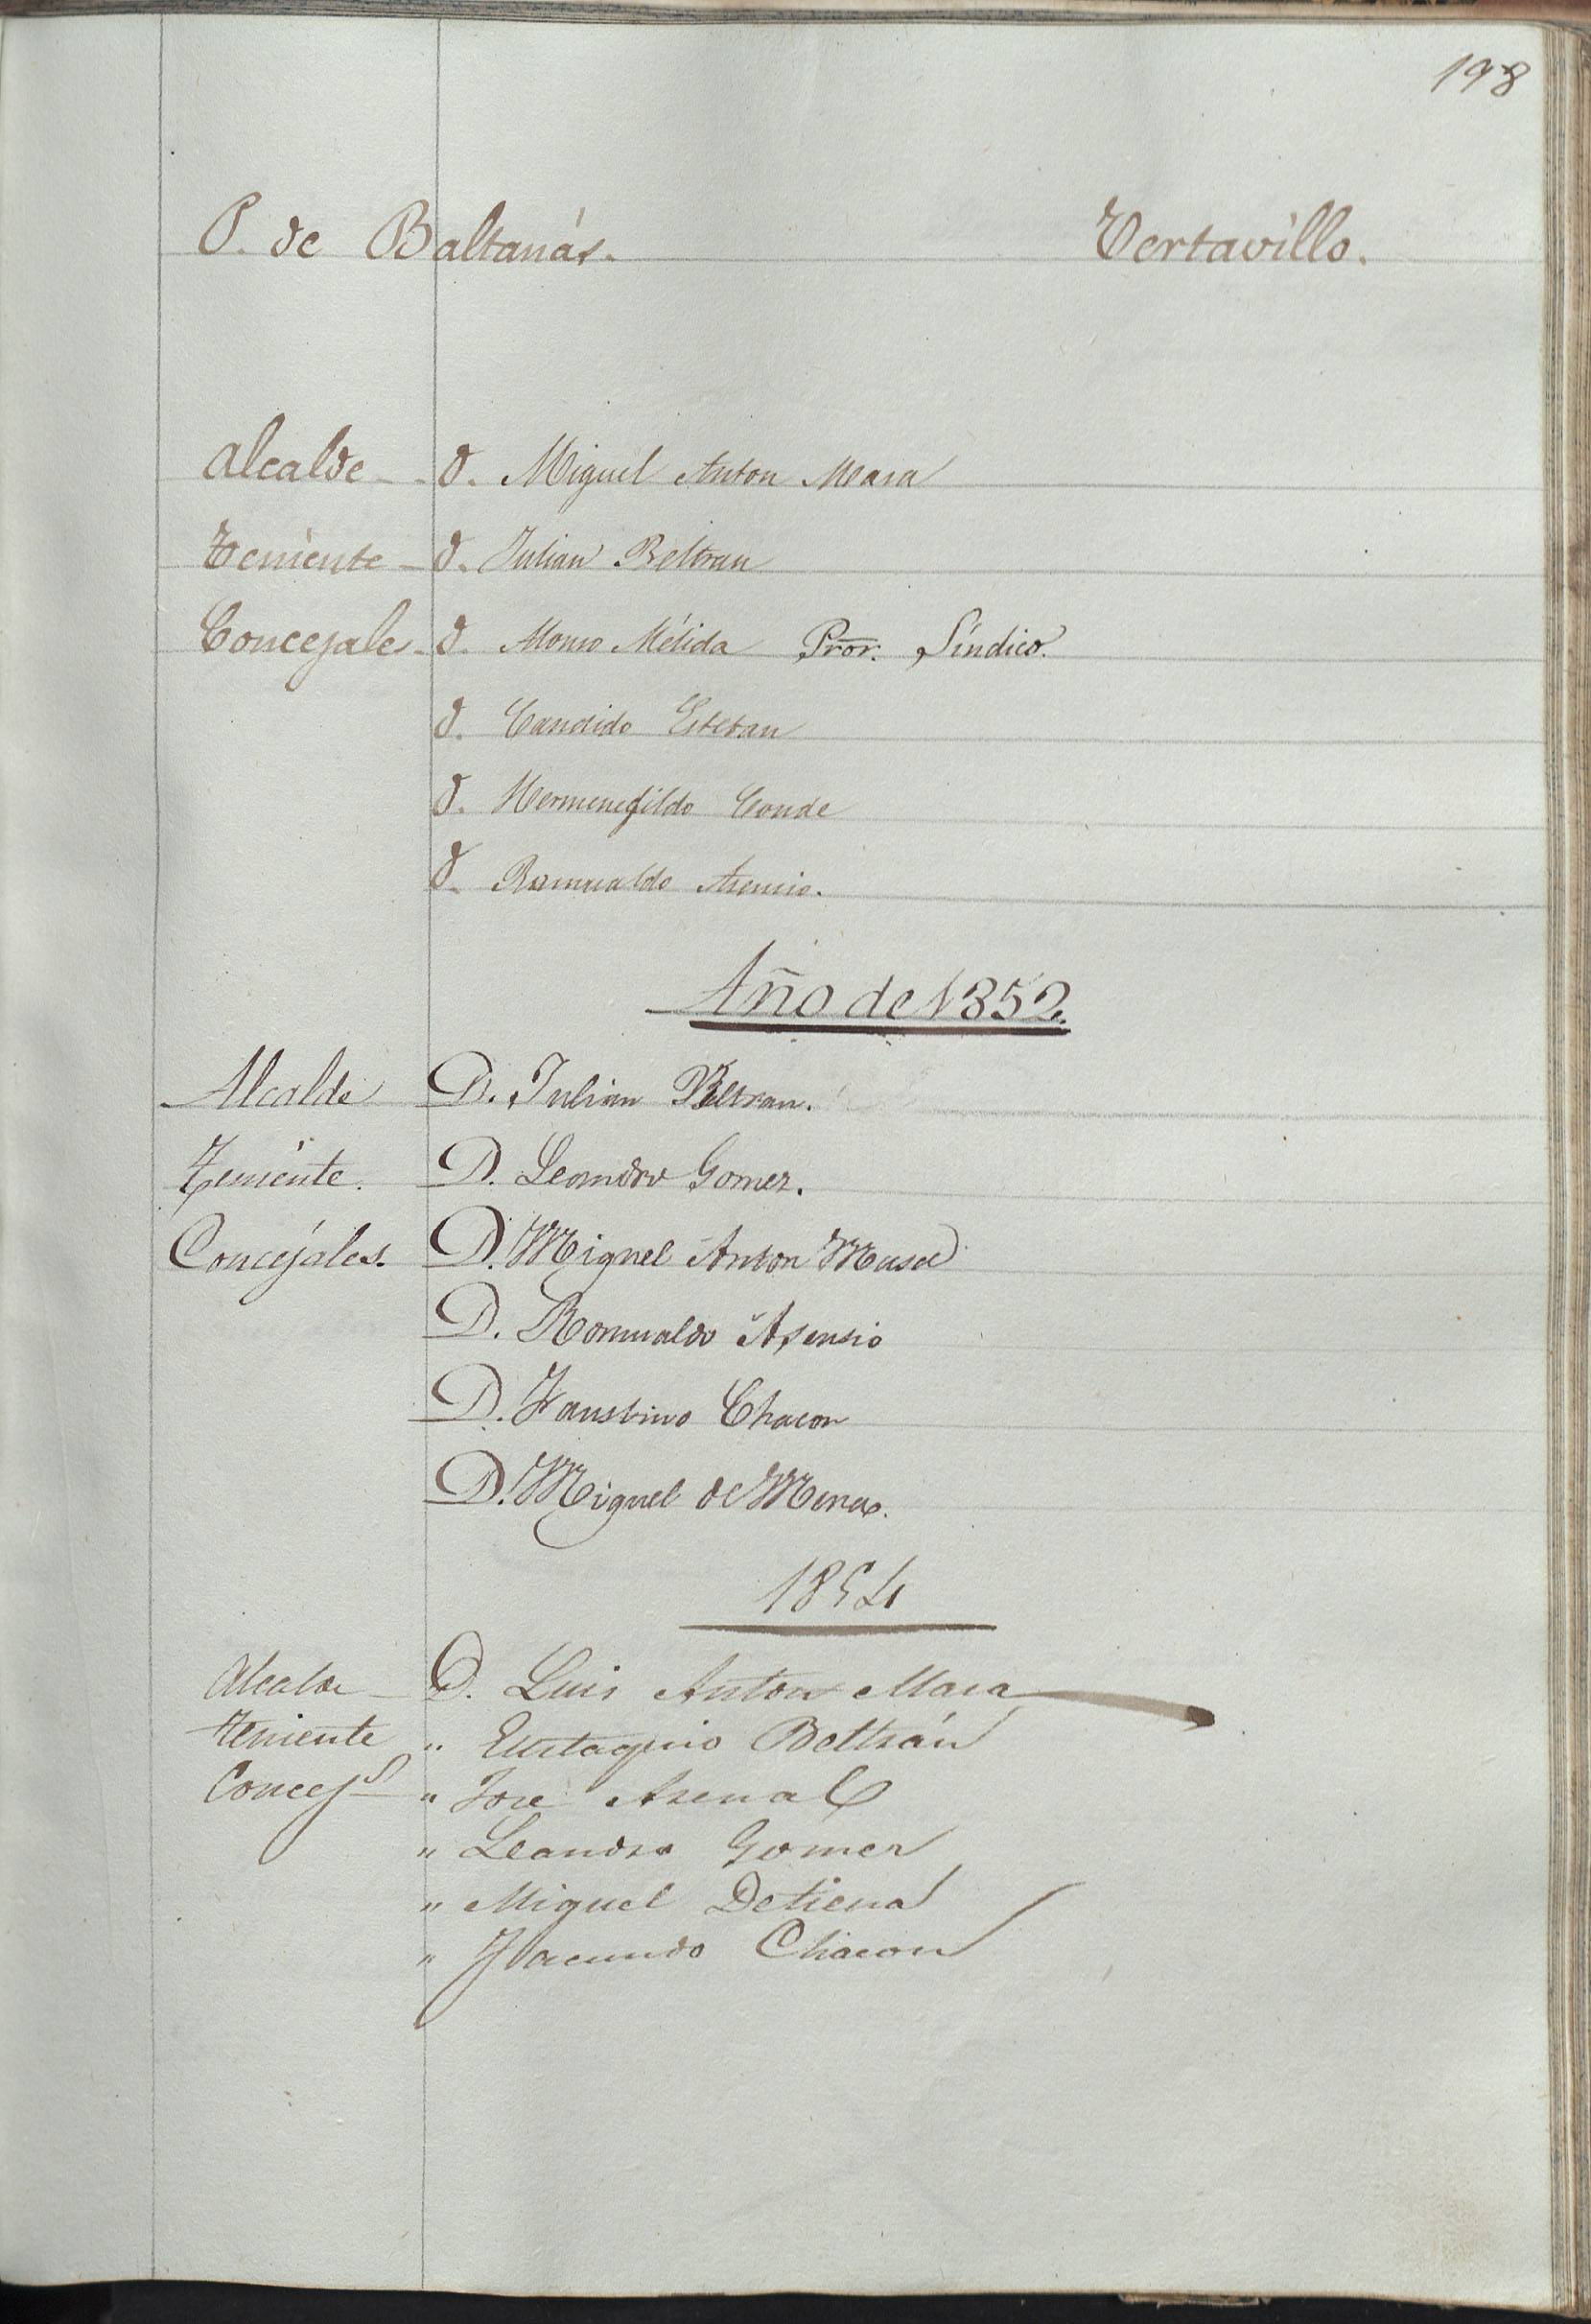 198
P. de Baltanás. Vertavillo.
Alcalde - D. Miguel Anton Masa
Teniente - D. Julian Beltran
Concejales - D. Alonso Mélida Pror. Síndico.
D. Candido Esteban
D. Hermenegildo Conde
D. Romualdo Asensio.
Año de 1852.
Alcalde D. Julian Beltran.
Teniente. D. Leandro Gomez.
Concejales. D. Miguel Anton Masa
D. Romualdo Asensio
D. Faustino Chacon
D. Miguel de
1854
Alcalde - D. Luis Anton Masa
Teniente " Eustaquio Beltrán
Concejs " Jose Asenal
" Leandro Gomez
" Miguel
" Facundo Chacon